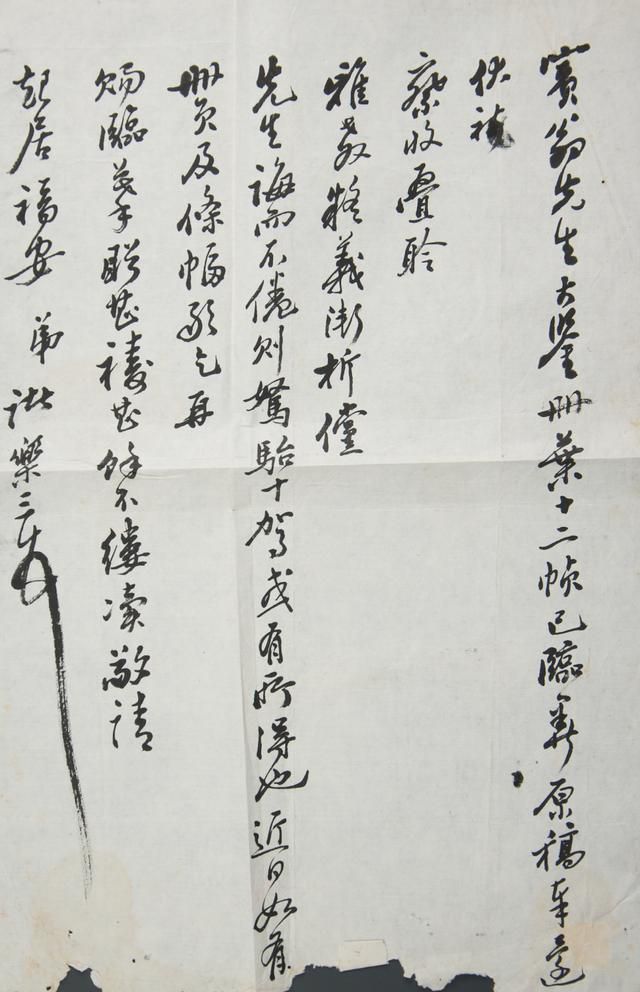 賓翁先生大鑒冊葉十二幀已臨竣原稿奉還
伏祈
察收疊聆
雅教疑義漸析儻
先生誨而不倦則駑駘十駕或有所得也近日如有
冊頁及條幅敬乞再
賜臨摹盼甚禱甚餘不縷瀆敬請
起居福安 弟 樂三